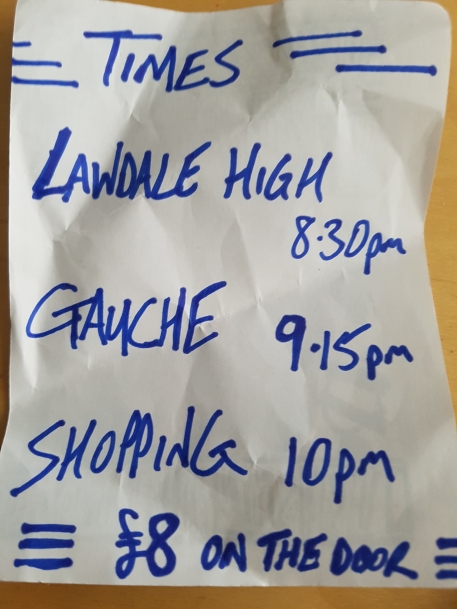 TIMES
LAWDALE HIGH
8.30pm
GAUCHE 9.15pm
SHOPPING 10pm
£8 ON THE DOOR